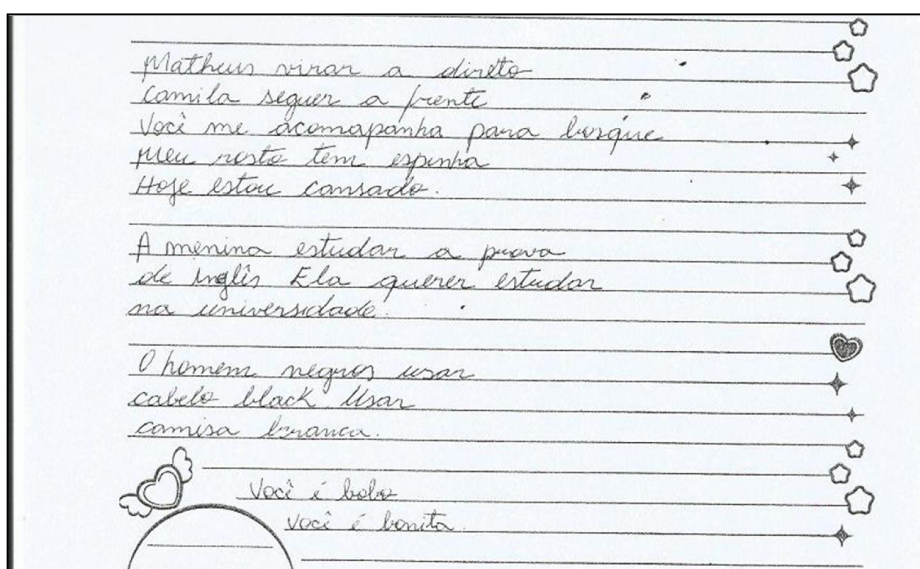 Matheus virar a direto
Camila seguer a frente
Você me acomapanha para bosque
Meu rosto tem espinha
Hoje estou cansado.
A menina estudar a prova
de Inglês Ela querer estudar
na universidade.
O homem negros usar
cabelo black Usar
camisa branca.
Você é bobo
Você é bonita.